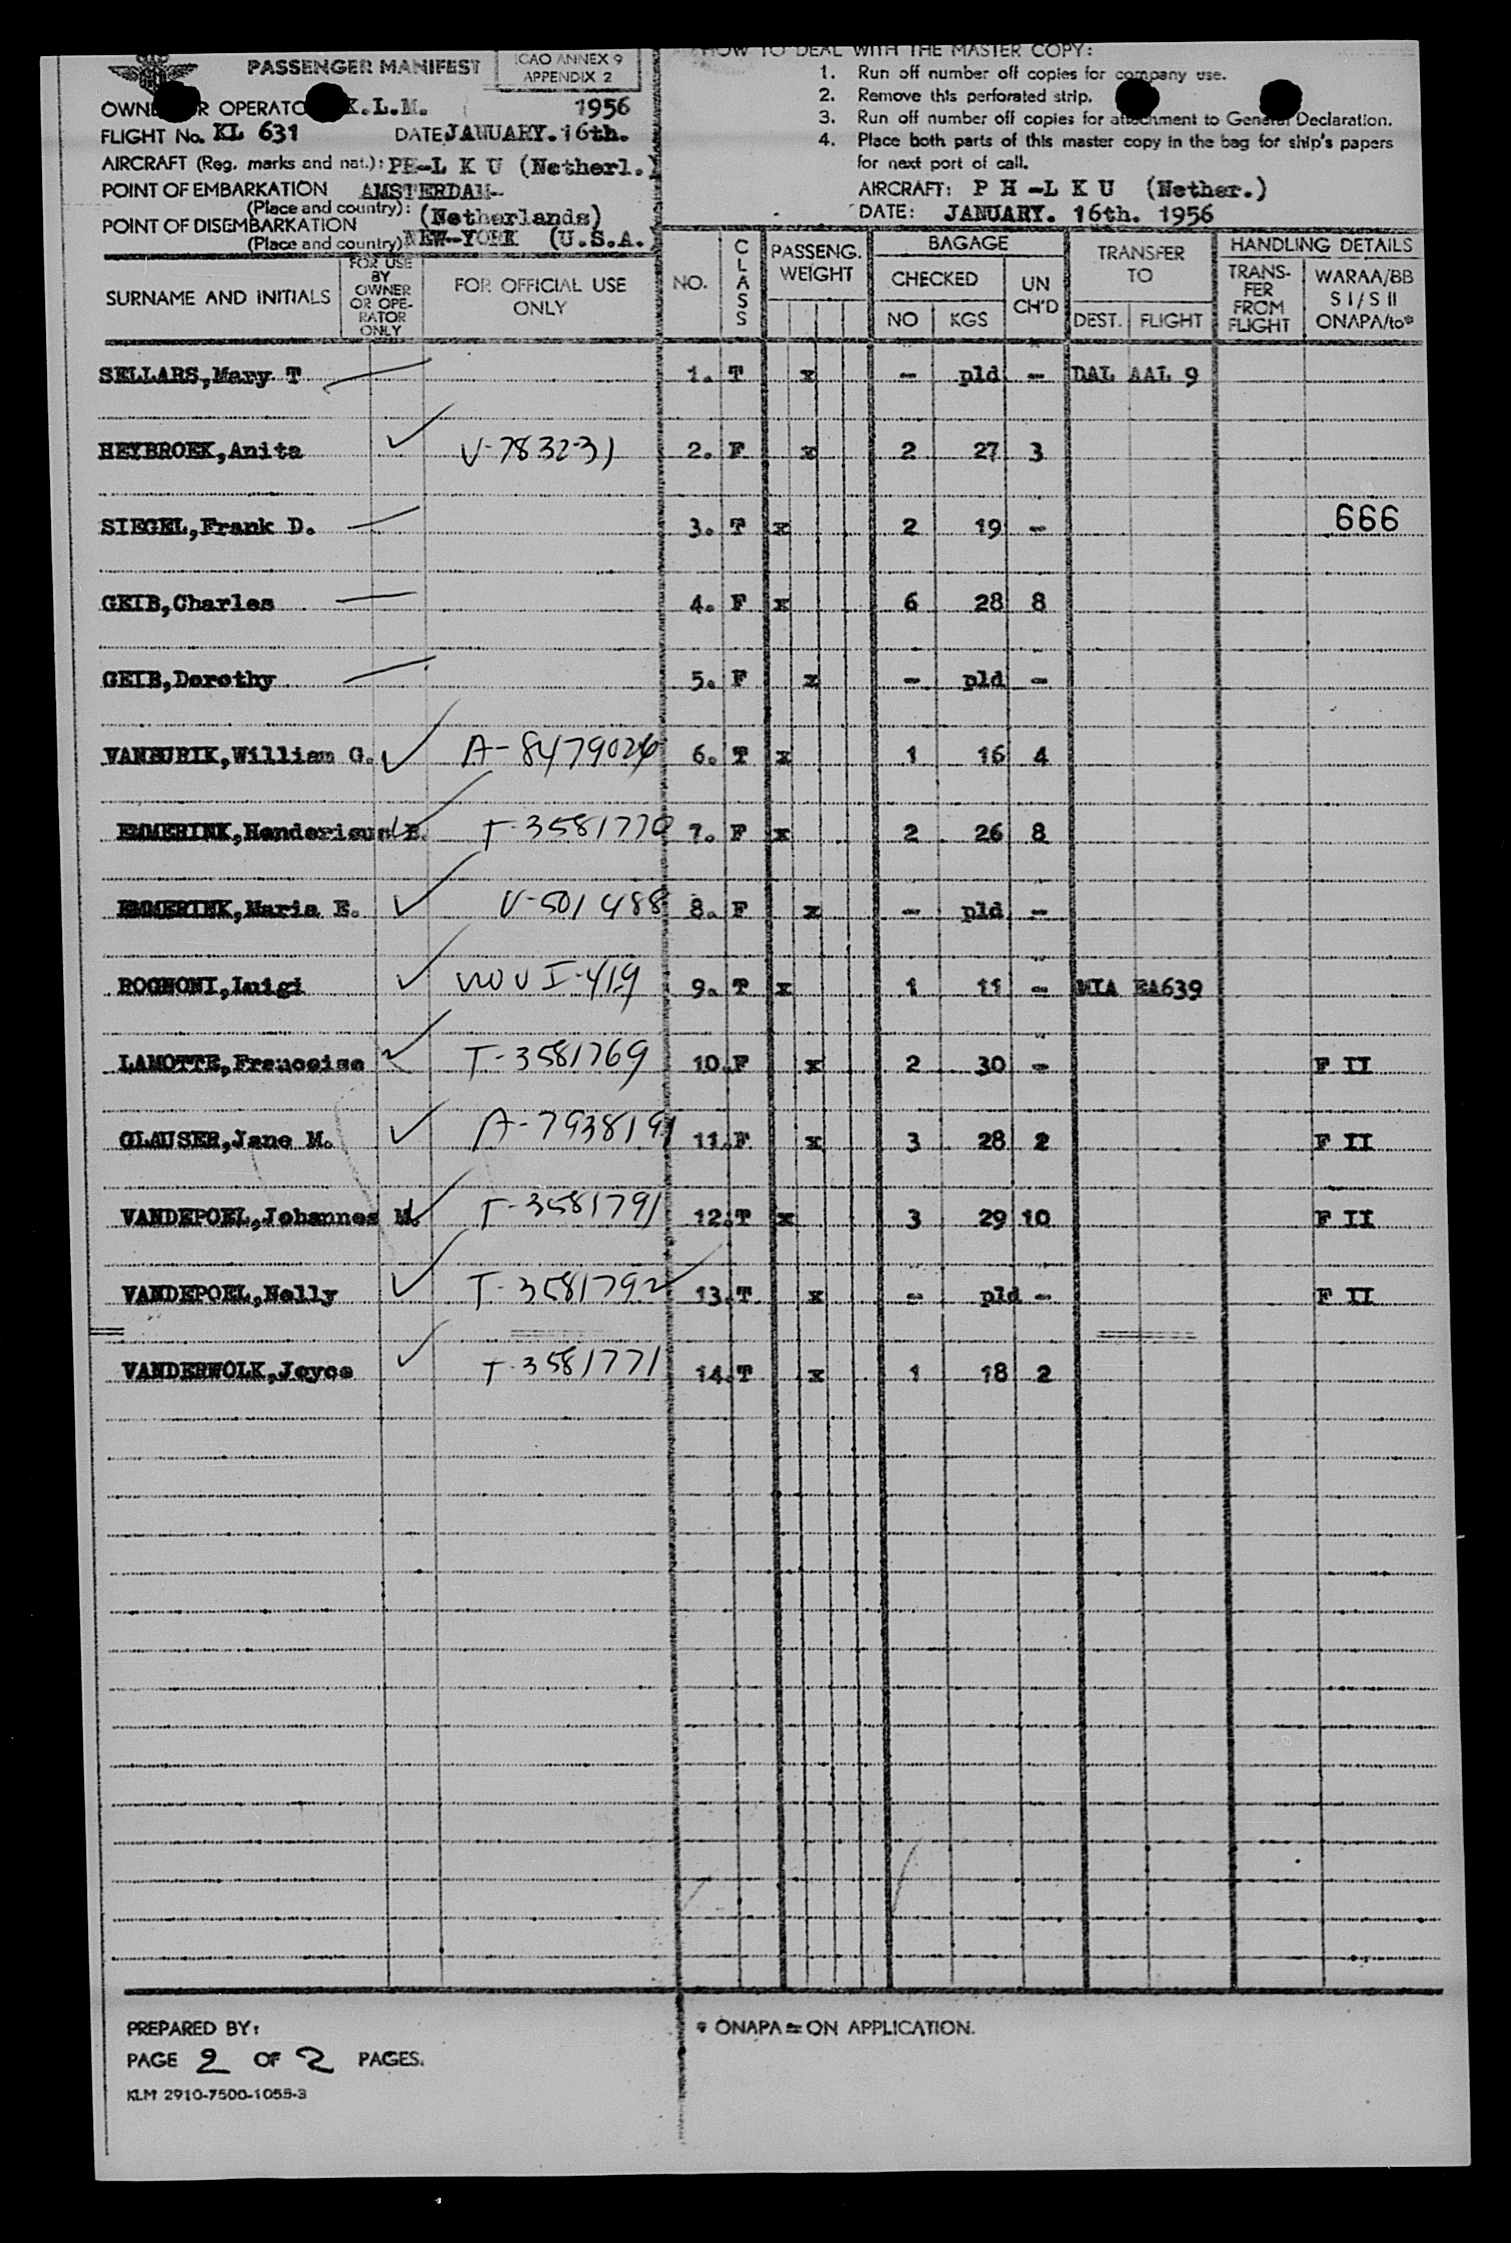 PASSENGER MANIFEST
ICAO ANNEX 9
APPENDIX 2
OWNER OR OPERATOR K.L.M. 1956
FLIGHT No. KL 631 DATE JANUARY.16th.
AIRCRAFT (Reg. marks and nat.): PH-L K U (Netherl.)
POINT OF EMBARKATION AMSTERDAM-
(Place and country): (Netherlands)
POINT OF DISEMBARKATION
(Place and country) NEW-YORK (U.S.A.)
HOW TO DEAL WITH THE MASTER COPY:
1. Run off number off copies for company use.
2. Remove this perforated strip.
3. Run off number off copies for attachment to General Declaration.
4. Place both parts of this master copy in the bag for ship's papers
for next port of call.
AIRCRAFT: P H -L K U (Nether.)
DATE: JANUARY. 16th. 1956
SURNAME AND INITIALS
FOR USE BY OWNER OR OPE-RATOR ONLY
FOR OFFICIAL USE ONLY
NO.
CLASS
PASSENG. WEIGHT
BAGAGE
CHECKED
NO KGS
UN CH'D
TRANSFER TO
DEST. FLIGHT
HANDLING DETAILS
TRANS-FER FROM FLIGHT
WARAA/BB
S I / S II
ONAPA/to*
SELLARS,Mary T 1. T x - pld - DAL AAL 9
HEYBROEK,Anita V-7832-31 2. F x 2 27 3
SIEGEL,Frank D. 3. T x 2 19 - 666
GEIB,Charles 4. F x 6 28 8
GEIB,Dorothy 5. F x - pld -
VANBURIK,William G. A-8479026 6. T x 1 16 4
EMMERINK,Hendericus B. T-3581770 7. F x 2 26 8
EMMERINK,Maria E. V-501488 8. F x - pld -
ROGNONI,Luigi I-419 9. T x 1 11 - MIA EA639
LAMOTTE,Francoise T-3581769 10. F x 2 30 - F II
GLAUSER,Jane M. A-7938191 11. F x 3 28 2 F II
VANDEPOEL,Johannes M. T-3581791 12. T x 3 29 10 F II
VANDEPOEL,Nelly T-3581792 13. T x - pld - F II
VANDERWOLK,Joyce T-3581771 14. T x 1 18 2
PREPARED BY:
* ONAPA = ON APPLICATION.
PAGE 2 OF 2 PAGES.
KLM 2910-7500-1055-3